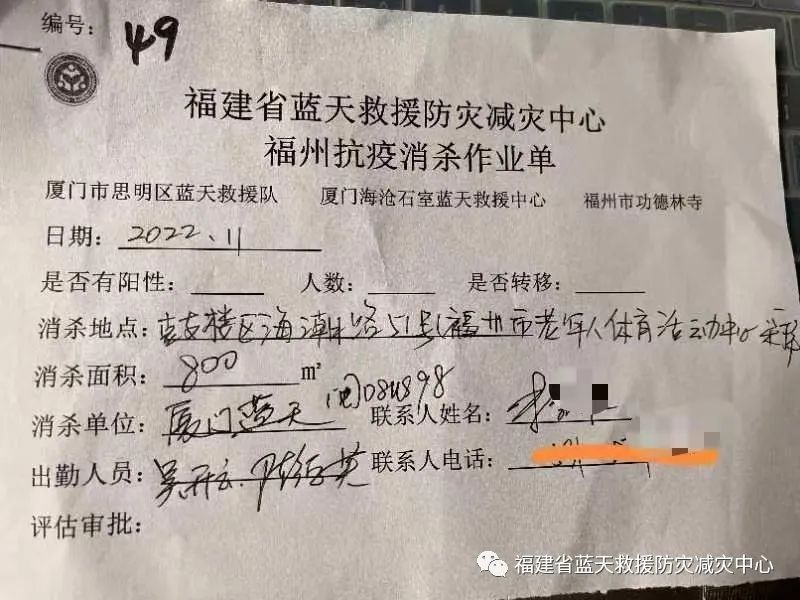 编号: 49
福建省蓝天救援防灾减灾中心
福州抗疫消杀作业单
厦门市思明区蓝天救援队 厦门海沧石室蓝天救援中心 福州市功德林寺
日期: 2022.11
是否有阳性: 人数: 是否转移:
消杀地点: 鼓楼区海潮路51号(福州市老年人体育活动中心
消杀面积: 800 m²
消杀单位: 厦门蓝天 (闽)084898 联系人姓名:
出勤人员: 联系人电话:
评估审批:
福建省蓝天救援防灾减灾中心